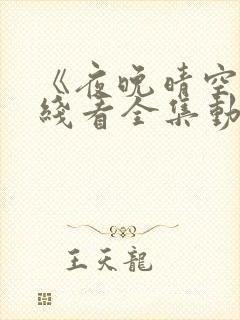 《夜晚晴空
綫看全集動
王天龍